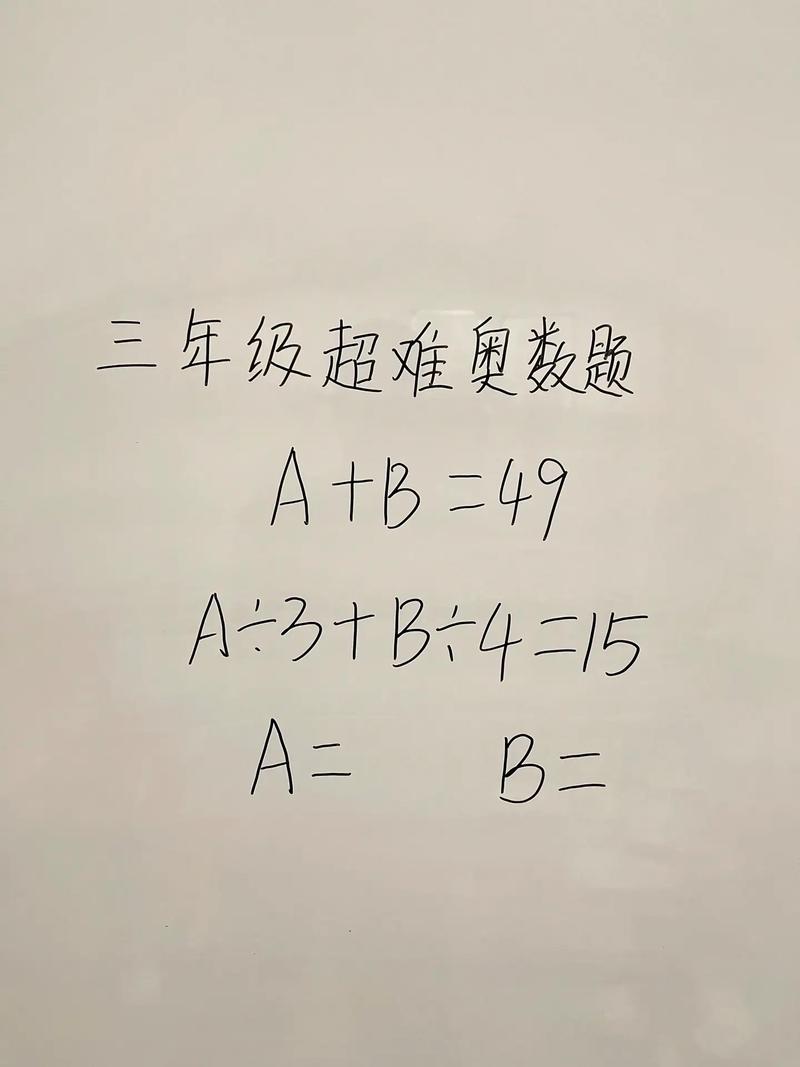 三年级超难奥数题
A+B=49
A÷3+B÷4=15
A= B=